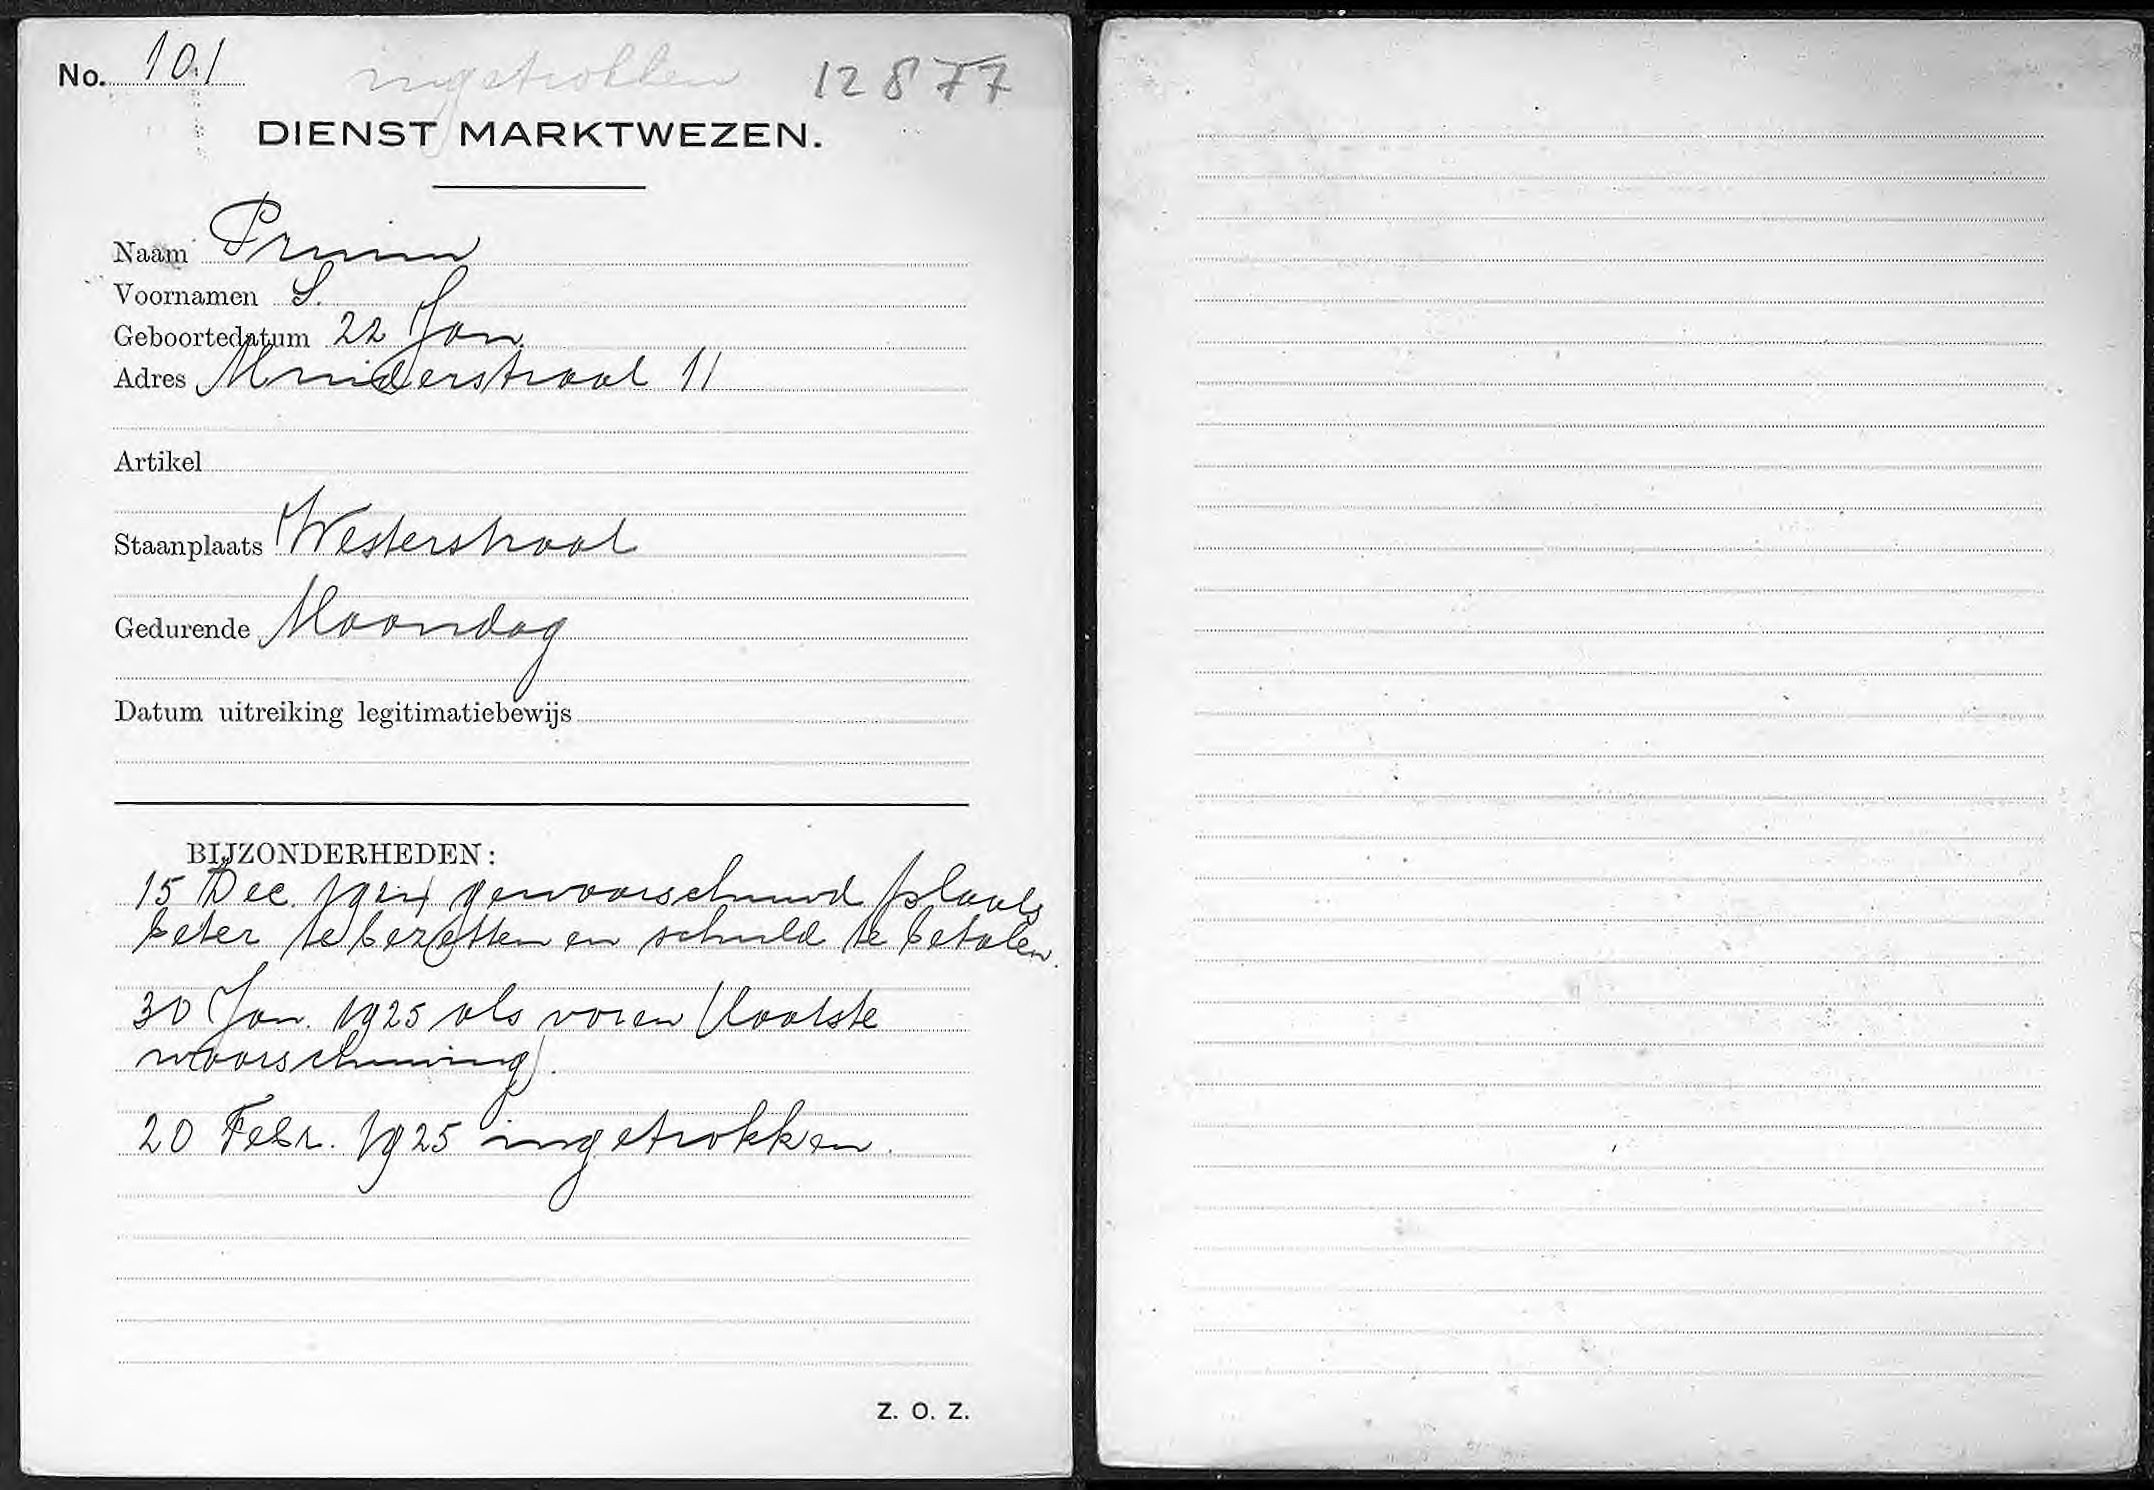 No. 101 ingetrokken 12877
DIENST MARKTWEZEN.
Naam Pruim
Voornamen S.
Geboortedatum 22 Jan.
Adres Muiderstraat 11
Artikel
Staanplaats Westerstraat
Gedurende Maandag
Datum uitreiking legitimatiebewijs
BIJZONDERHEDEN:
15 Dec. 1924 gewaarschuwd plaats
beter te bezetten en schuld te betalen.
30 Jan. 1925 als voren (laatste
waarschuwing).
20 Febr. 1925 ingetrokken.
Z. O. Z.